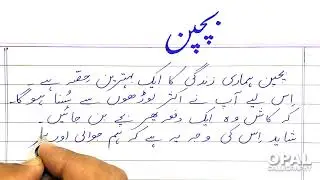 بچپن
بچپن ہماری زندگی کا ایک بہترین حصّہ ہے۔
اس لیے آپ نے اکثر بوڑھوں سے سُنا ہو گا۔
کہ کاش وہ ایک دفعہ پھر بچے بن جائیں۔
شاید اس کی وجہ یہ ہے کہ ہم جوانی اور
OPAL
CALLIGRAPHY